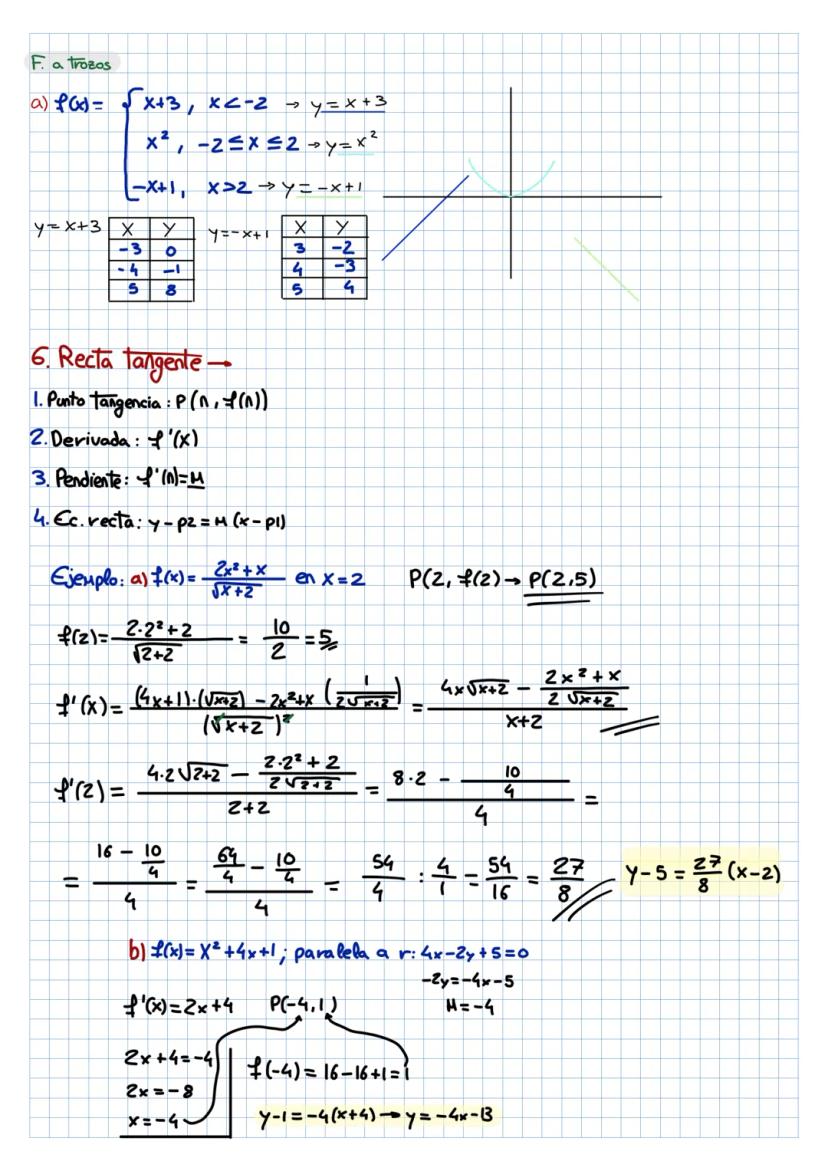 F. a trozos
a) f(x) = { x+3, x<-2 → y = x+3
x², -2≤x≤2 → y=x²
-x+1, x>2 → y = -x+1
y = x+3 | X | Y | y=-x+1 | X | Y |
| -3 | 0 | | 3 | -2 |
| -4 | -1 | | 4 | -3 |
| 5 | 8 | | 5 | 4 |
6. Recta tangente →
1. Punto tangencia: P(n, f(n))
2. Derivada: f'(x)
3. Pendiente: f'(n)=M
4. Ec. recta: y-p2=M(x-p1)
Ejemplo: a) f(x) = (2x²+x)/(√x+2) en x=2 P(2, f(2) → P(2,5)
f(2)= (2·2²+2)/(√2+2) = 10/2 = 5
f'(x)= ((4x+1)·(√x+2) - 2x²+x (1/(2√x+2)))/((√x+2)²) = (4x√x+2 - (2x²+x)/(2√x+2))/(x+2)
f'(2) = (4·2√2+2 - (2·2²+2)/(2√2+2))/(2+2) = (8·2 - 10/4)/4 =
= (16 - 10/4)/4 = (64/4 - 10/4)/4 = 54/4 : 4/1 = 54/16 = 27/8 y-5 = 27/8 (x-2)
b) f(x)= x²+4x+1; paralela a r: 4x-2y+5=0
-2y=-4x-5
f'(x)=2x+4 P(-4,1) M=-4
2x+4=-4 f(-4) = 16-16+1=1
2x=-8
x=-4 y-1=-4(x+4) → y=-4x-13